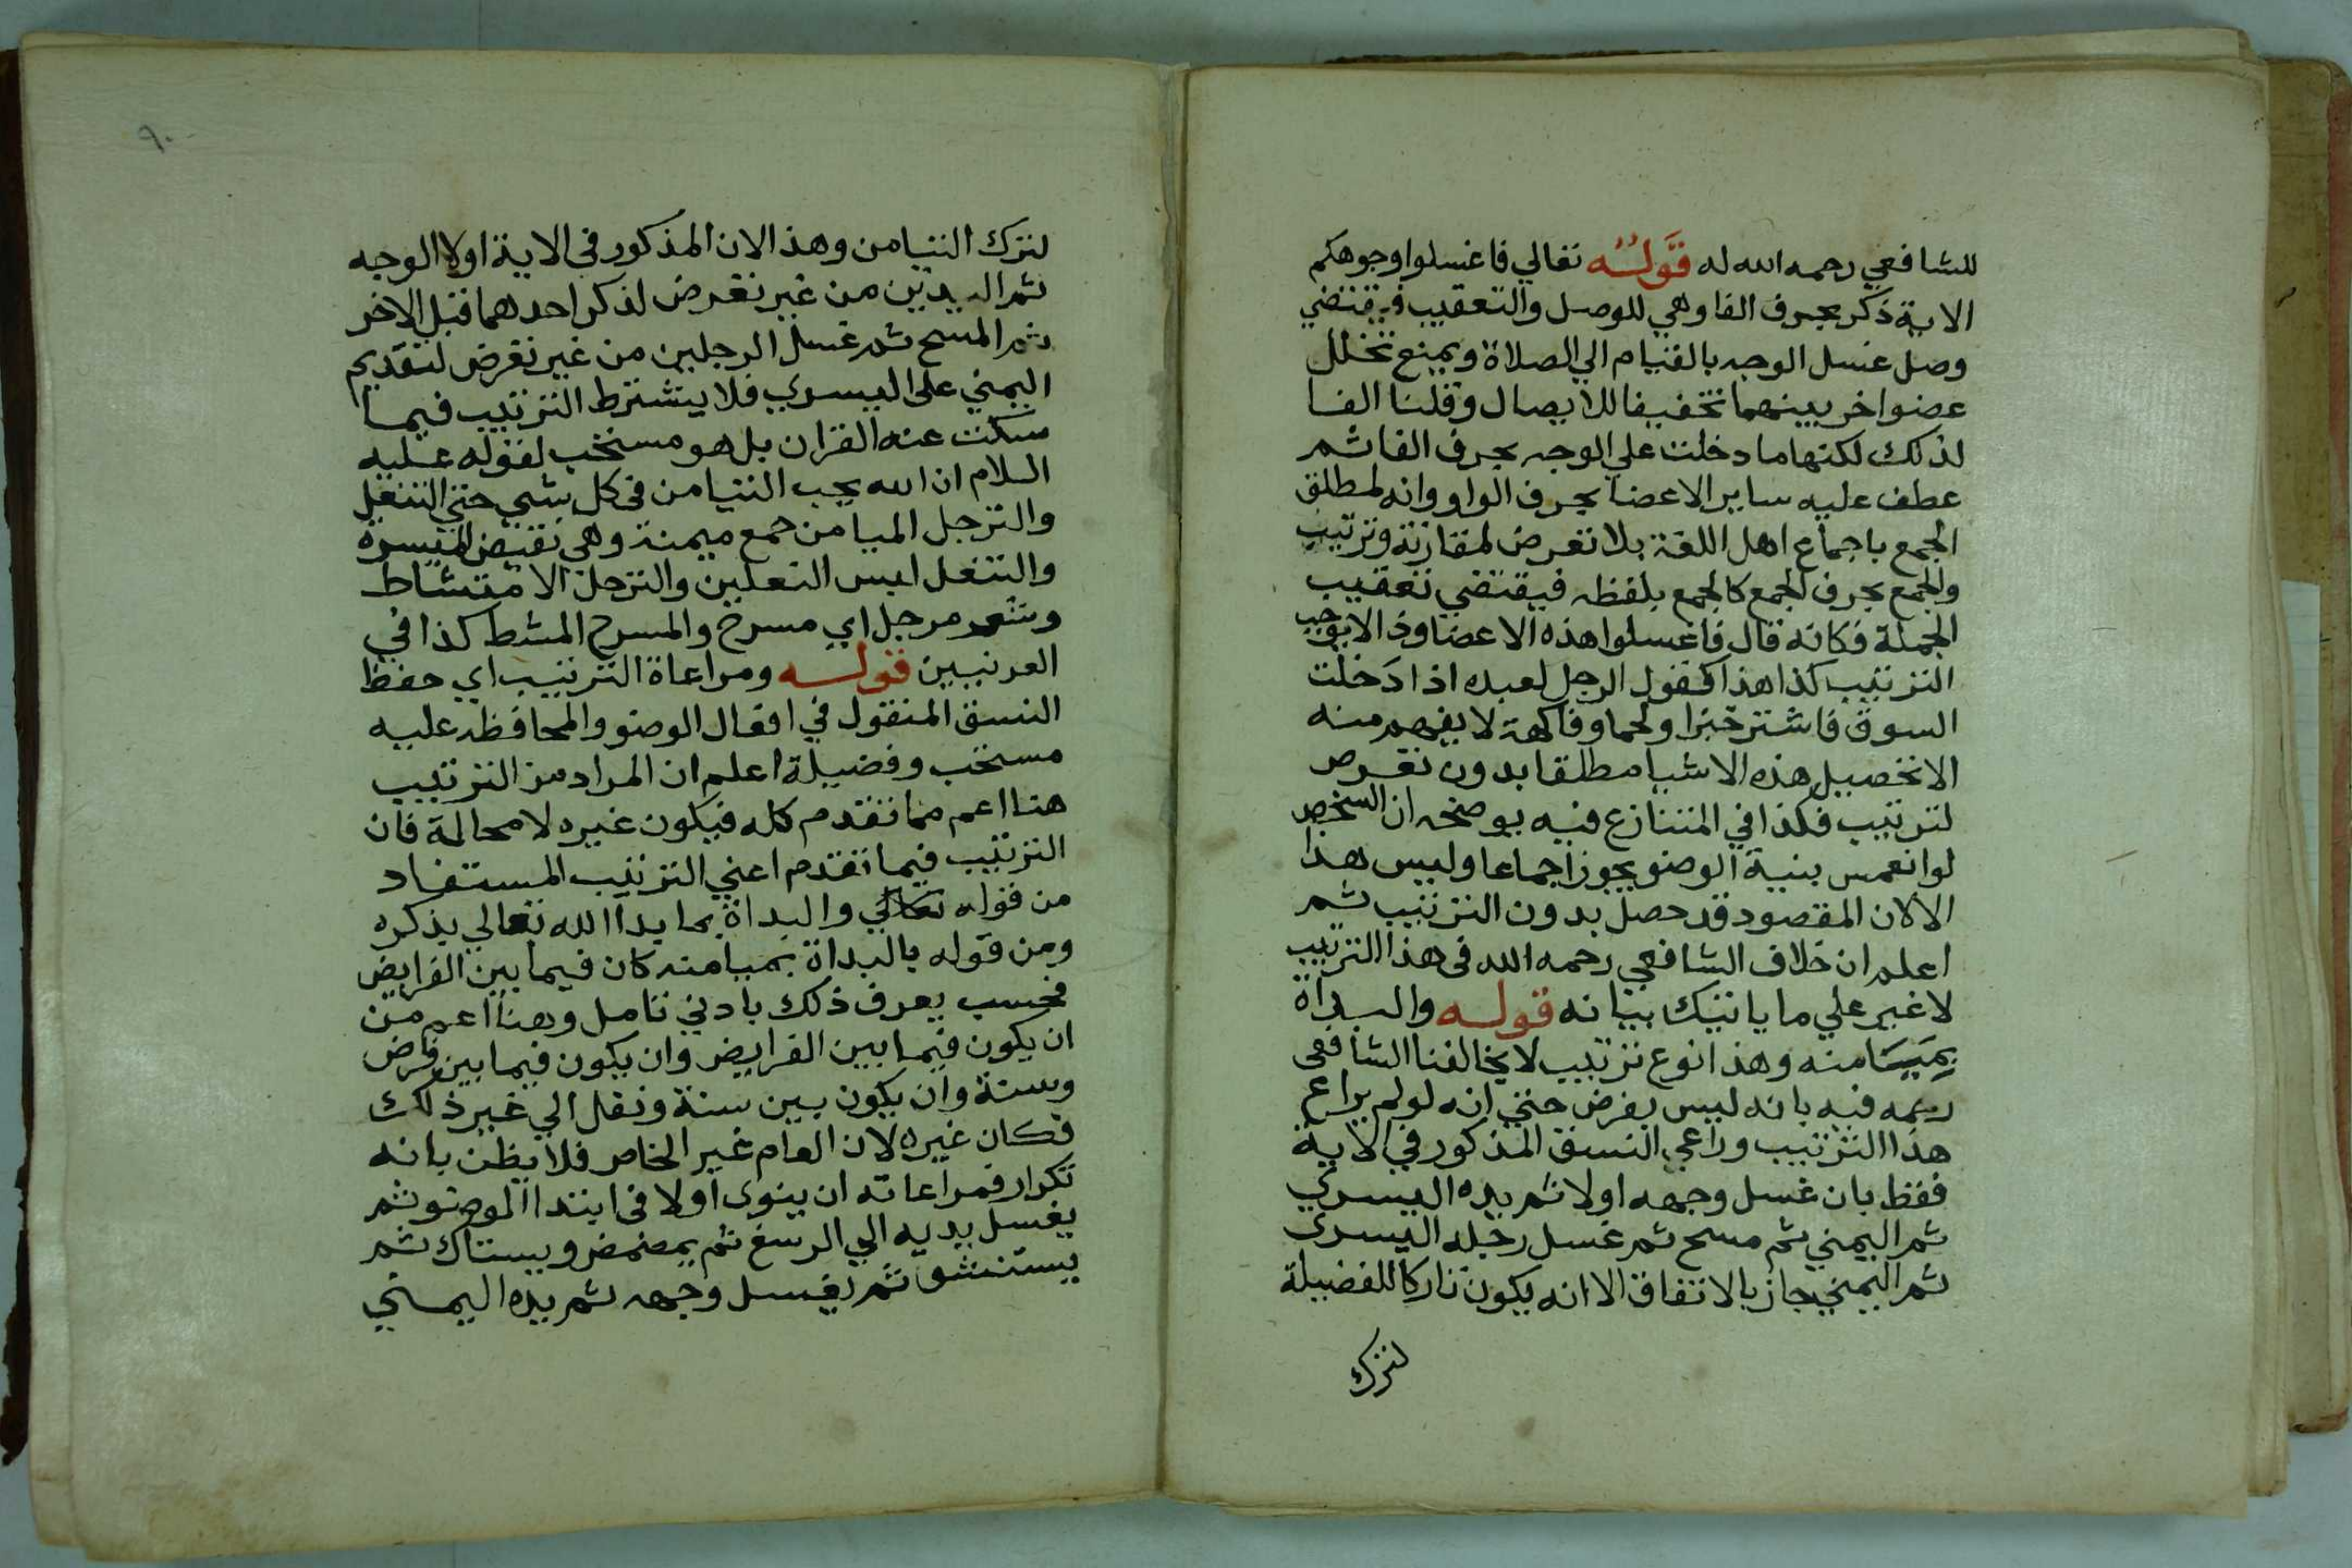 للشافعي رحمه الله له قوله تعالي فاغسلوا وجوهكم
الاية ذكر بحرف الفا وهي للوصل والتعقيب فيقتضي
وصل غسل الوجه بالقيام الي الصلاة ويمنع تخلل
عضو اخر بينهما تخفيفا للايصال وقلنا الفا
لذلك لكنها ما دخلت علي الوجه بحرف الفا ثم
عطف عليه ساير الاعضا بحرف الواو وانه لمطلق
الجمع باجماع اهل اللغة بلا تعرض لمقارنة وترتيب
والجمع بحرف الجمع كالجمع بلفظه فيقتضي تعقيب
الجملة فكانه قال فاغسلوا هذه الاعضا وذا لا يوجب
الترتيب كذا هذا كقول الرجل لعبده اذا دخلت
السوق فاشتر خبزا ولحما وفاكهة لا يفهم منه
الا تحصيل هذه الاشيا مطلقا بدون تعرض
لترتيب فكذا في المتنازع فيه يوضحه ان الشخص
لو انغمس بنية الوضو يجوز اجماعا وليس هذا
الا لان المقصود قد حصل بدون الترتيب ثم
اعلم ان خلاف الشافعي رحمه الله في هذا الترتيب
لا غير علي ما ياتيك بيانه قوله والبداة
بميامنه وهذا نوع ترتيب لا يخالفنا الشافعي
رحمه فيه بانه ليس بفرض حتي انه لو لم يراع
هذا الترتيب وراعي النسق المذكور في الاية
فقط بان غسل وجهه اولا ثم يده اليسري
ثم اليمني ثم مسح ثم غسل رجله اليسري
ثم اليمني جاز بالاتفاق الا انه يكون تاركا للفضيلة
لترك
٩٠
لترك التيامن وهذا لان المذكور في الاية اولا الوجه
ثم اليدين من غير تعرض لذكر احدهما قبل الاخر
ثم المسح ثم غسل الرجلين من غير تعرض لتقديم
اليمني علي اليسري فلا يشترط الترتيب فيما
سكت عنه القران بل هو مستحب لقوله عليه
السلام ان الله يحب التيامن في كل شي حتي التنعل
والترجل الميامن جمع ميمنة وهي نقيض الميسرة
والتنعل لبس النعلين والترجل الامتشاط
وشعر مرجل اي مسرح والمسرح المشط كذا في
الغريبين قوله ومراعاة الترتيب اي حفظ
النسق المنقول في افعال الوضو والمحافظه عليه
مستحب وفضيلة اعلم ان المراد من الترتيب
هنا اعم مما تقدم كله فيكون غيره لا محالة فان
الترتيب فيما تقدم اعني الترتيب المستفاد
من قوله تعالي والبداة بما بدا الله تعالي بذكره
ومن قوله بالبداة بميامنه كان فيما بين الفرايض
فحسب يعرف ذلك بادني تامل وهنا اعم من
ان يكون فيما بين الفرايض وان يكون فيما بين فرض
وسنة وان يكون بين سنة ونفل الي غير ذلك
فكان غيره لان العام غير الخاص فلا يظن بانه
تكرار فمراعاته ان ينوي اولا في ابتدا الوضو ثم
يغسل يديه الي الرسغ ثم يمضمض ويستاك ثم
يستنشق ثم يغسل وجهه ثم يده اليمني